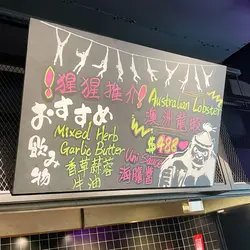 !猩猩推介!
Australian Lobster
澳洲龍蝦
$488
おすすめ
飲み物
Mixed Herb
Garlic Butter
香草蒜蓉
牛油
Uni Sauce
海膽醬